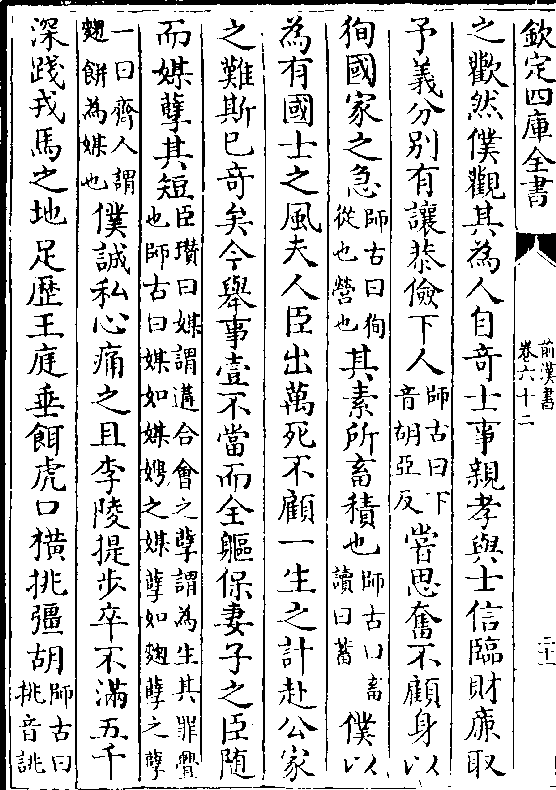 欽定四庫全書
前漢書
卷六十二
二十
之歡然僕觀其為人自奇士事親孝與士信臨財廉取
予義分別有讓恭儉下人師古曰下音胡亞反嘗思奮不顧身以
狥國家之急師古曰狥從也營也其素所畜積也師古曰畜讀曰蓄僕以
為有國士之風夫人臣出萬死不顧一生之計赴公家
之難斯已奇矣今舉事壹不當而全軀保妻子之臣隨
而媒孽其短臣瓚曰媒謂遘合會之孽謂為生其罪釁也師古曰媒如媒娉之媒孽如麴孽之孽
一曰齊人謂麴餅為媒也僕誠私心痛之且李陵提步卒不滿五千
深踐戎馬之地足歴王庭垂餌虎口橫挑彊胡師古曰挑音誂